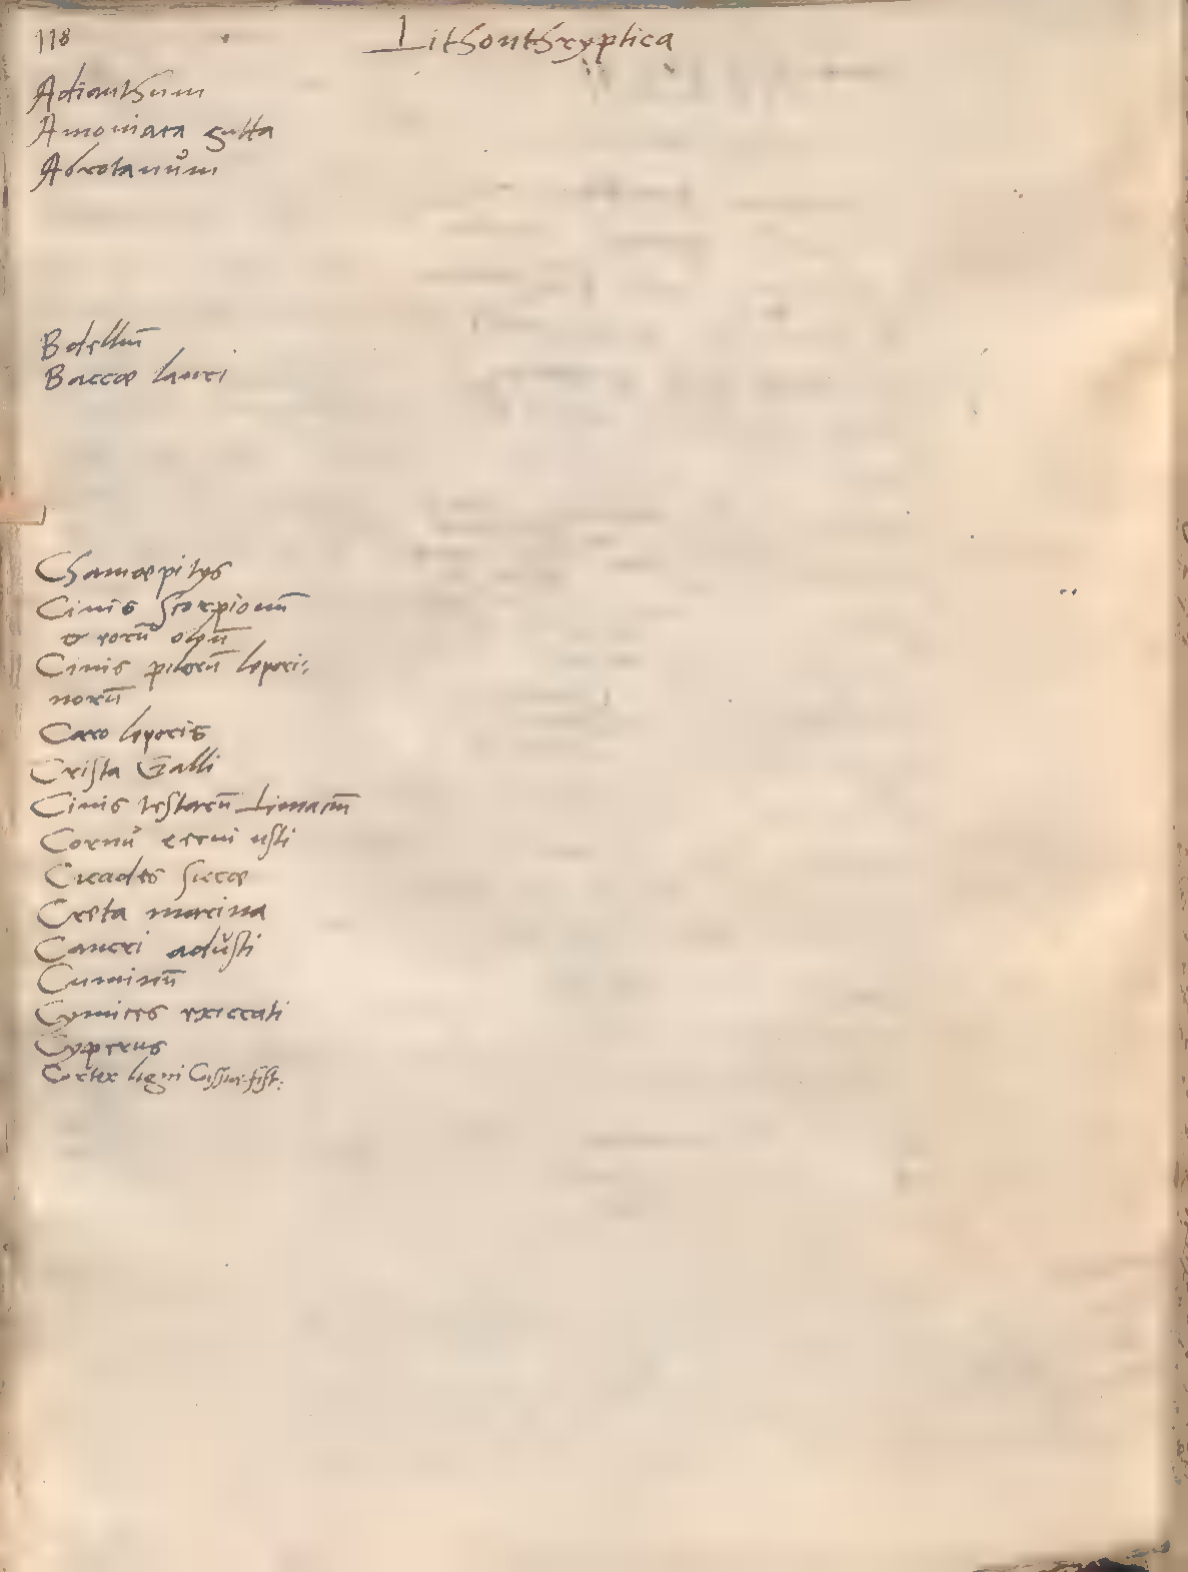 118
Lithonthryptica
Adianthum
Amoniaca gutta
Abrotanum
Bdelliū
Baccæ lauri
Chamæpitys
Cinis scorpionū
& eorū oleū
Cinis pilorū lepori:
norū
Caro leporis
Crista Galli
Cinis testarū Limacū
Cornu cerui usti
Cicades siccæ
Creta marina
Cancri adusti
Cuminū
Cymices exiccati
Cyperus
Cortex ligni Cassiæ fist: